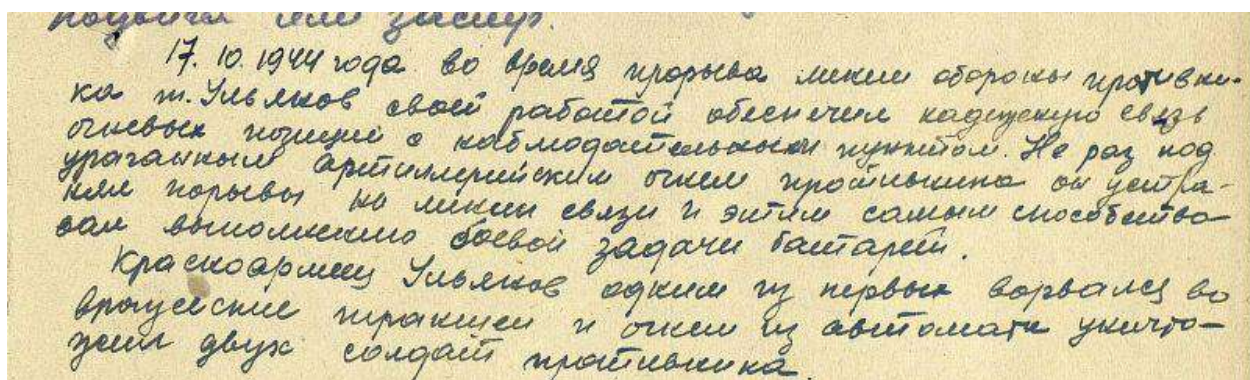 подвига или заслуг.
17.10.1944 года во время прорыва линии обороны противни-
ка т. Ульянов своей работой обеспечил надежную связь
огневых позиций с наблюдательным пунктом. Не раз под
ураганным артиллерийским огнем противника он устра-
нял порывы на линии связи и этим самым способство-
вал выполнению боевой задачи батареей.
Красноармеец Ульянов одним из первых ворвался во
вражеские траншеи и огнем из автомата уничто-
жил двух солдат противника.